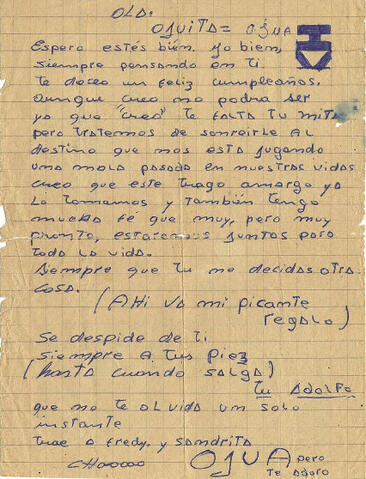 OLA:
OJUITA = OJUA
Espero estés bien. yo bien,
siempre pensando en ti.
te deceo un feliz cumpleaños.
aunque creo no podra ser
ya que "creo" te falta tu mita
pero tratemos de sonreirle AL
destino que nos esta jugando
una mala pasada en nuestras vidas
creo que este trago amargo ya
Lo tomamos y también tengo
mucha fé que muy, pero muy
pronto, estaremos juntos para
toda la vida.
siempre que tu no decidas otra
cosa.
(AHI VA mi picante
regalo)
Se despide de ti
siempre A tus piez
(hasta cuando salga)
tu Adolfo
que no te olvida un solo
instante
trae a Fredy. y sandrita
chaoooo OJUA pero
te adoro